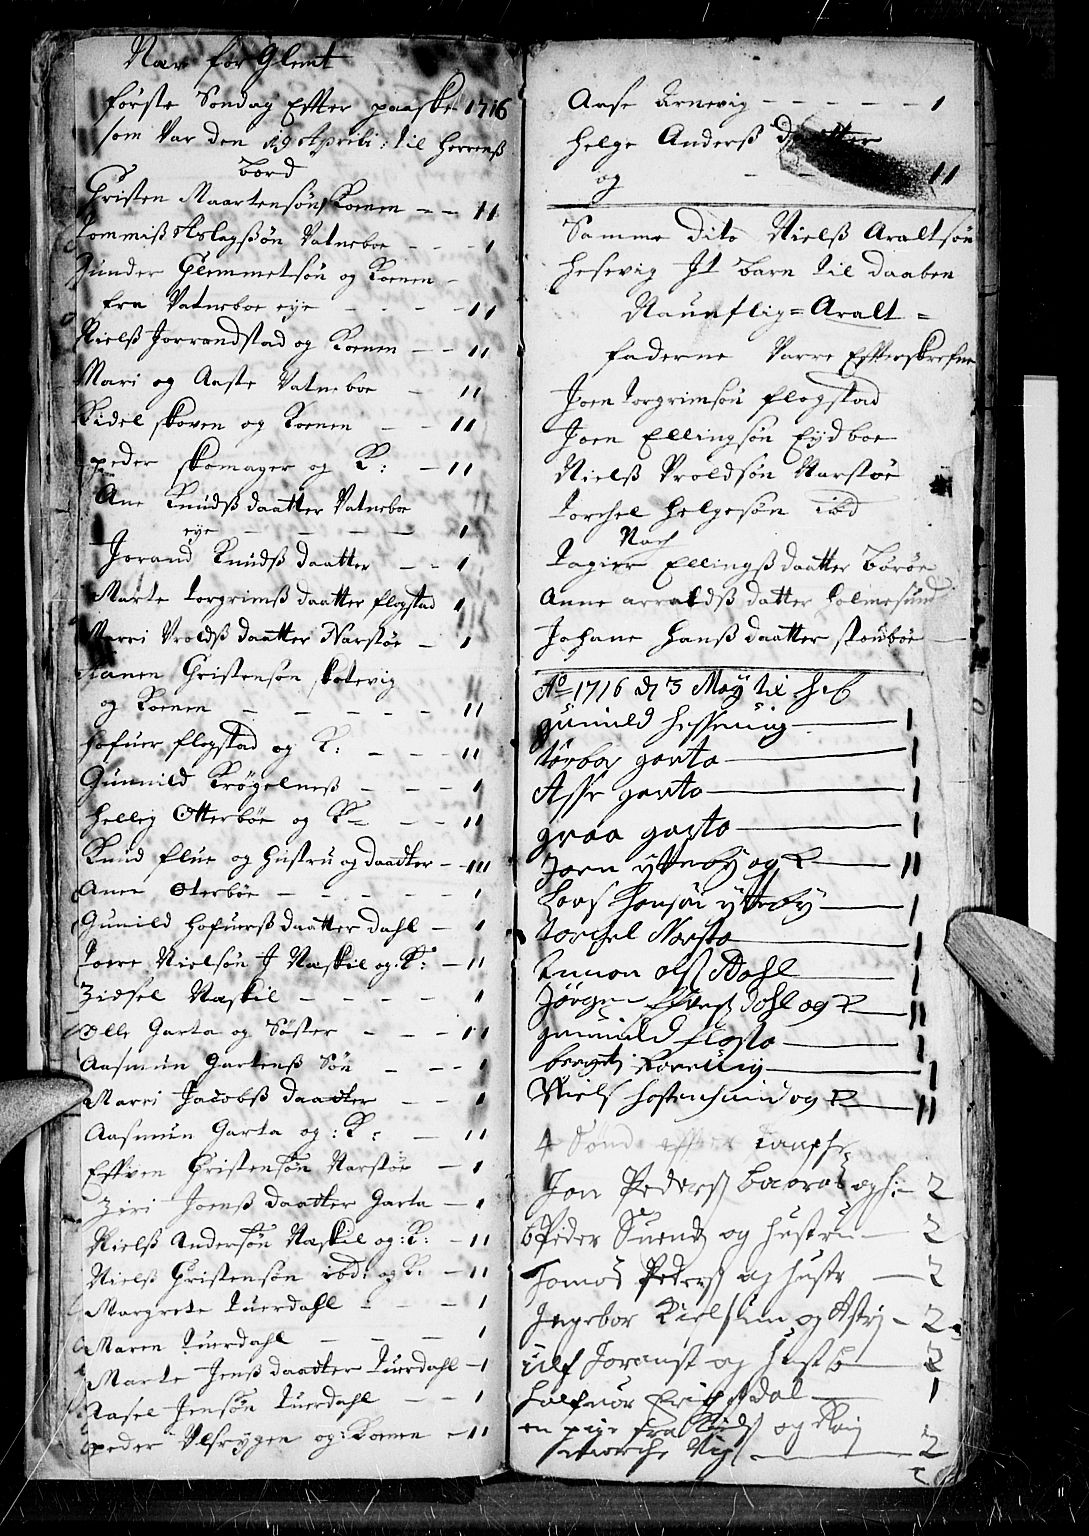 Nar for Glemt
første Søndag Efter paaske 1716
som Var den 19 Aprili: til Herrenß
Bord
Christen Maartensøn Konen -- 11
Tommiß Aslagßøn Vatneboe --- 1
Gunder Clemmetsøn og Konen -
fra Vatneboe eye ---- 11
Nielß Jorrandstad og Konen -- 11
Mari og Aaste Vatneboe - 11
Kidil skoven og Konen -- 11
peder skomager og K: - 11
Ane Knudß daatter Vatneboe
eye ----- 1
Jorand Knudß daatter -- 1
Marte torgrimß daatter flogstad 1
Marri Vroldß daatter Narstøe - 1
Christensøn skotevig
og Konen ----- 11
Hofuer flogstad og K: --- 11
Gunnild Krøgelneß --- 1
Helleg Otterbøe og K -- 11
Knud flue og Hustru og daadter - 111
Anne Oterbøe ----- 1
Gunild Hofuerß daatter dahl - 1
Tore Nielsøn J Naskil og: K: - 11
Zidsel Naskil ---- 1
Olle Garta og Søster --- 11
Aasmun Gartenß Søn -- 1
Marri Jacobß daadter -- 1
Aasmun Garta og: K: - 11
Effven Christensøn Narstøe - 1
Ziri Joenß daatter Garta - 1
Nielß Andersøn Naskil og: K: - 11
Nielß Christensøn ibd: og K: - 11
Margrete Tuerdahl -- 1
Maren Tuerdahl --- 1
Marte Jenß daadter Tuerdahl - 1
Aasel Jensøn Tuerdahl -- 1
peder Ulfrygen og: Konen -- 11
Aase Arnevig ------ 1
Helge Anderß daatter
og -- 11
Samme dito Nielß Araltsøn
Hesevig It barn til daaben
Naunflig = Aralt =
faderne Varre Effterskrefne
Joen Torgrimsøn flogstad
Joen Ellingsøn Eydboe
Nielß Vroldsøn Narstøe
Torchel Helgesøn ibd
Nach
Ellingß daatter Børøe
Anne arraldß datter Holmesund
Johane Hanß daatter stoubøe
Ao 1716 d 3 Maÿ til
gunnild Hesseuig 1
torbor garta 1
Asse garta 1
graa garta 1
Joen ytterøy og K 11
Lars Hansøn ytterøy 1
torchel Narsto 1
olß Dahl 1
Jørgen Dohl og K 11
gunnild flosta 1
berget 1
Niels Hostensund og K 11
4 Sønd: effter
Jon Pederß og h: 2
Peder Suend og Hustru 2
Tomas Pederß og Hustr 2
Ingebor Kielß og Astrj 2
Ulf Joranst og Hust 2
Halfuor Dal 1
en pige fra og
2